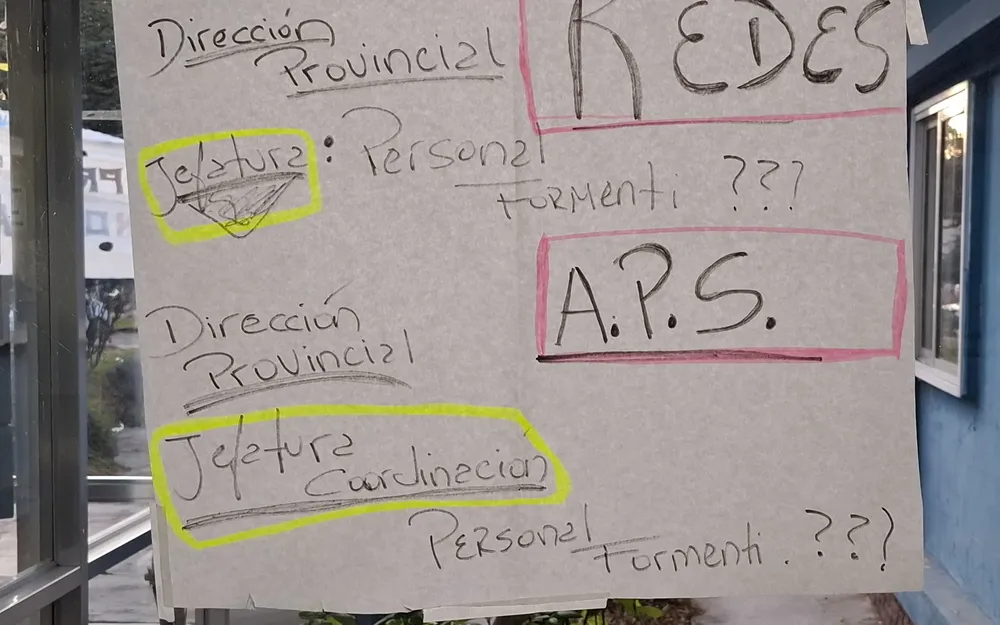 Dirección
Provincial
REDES
Jefatura: Personal
Formenti ???
A.P.S.
Dirección
Provincial
Jefatura
Coordinacion
Personal
Formenti. ???